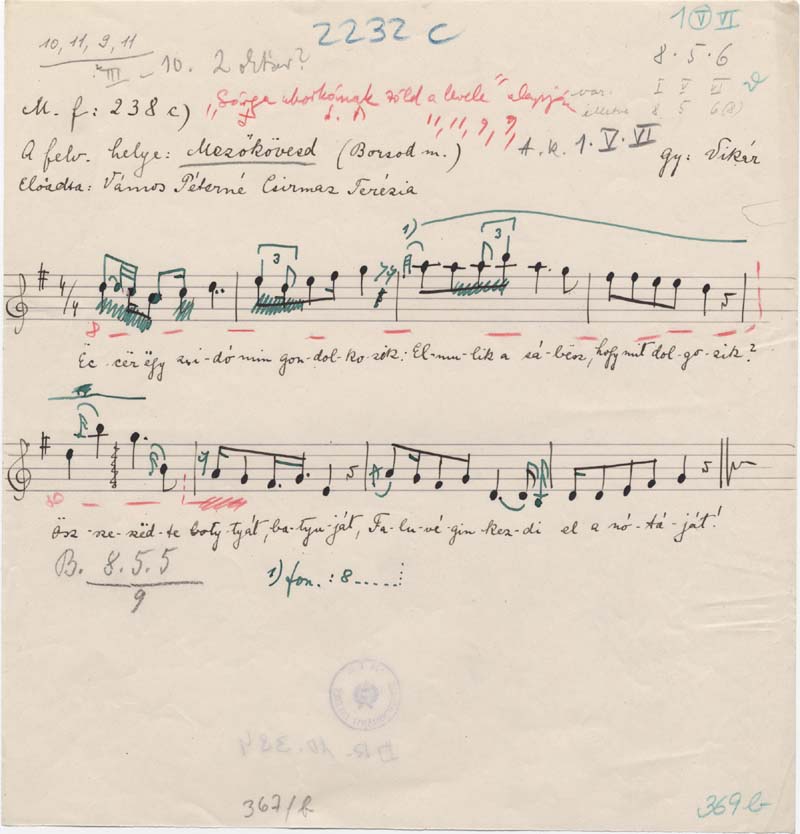 2232 c
1 Ⓥ VI
10, 11, 9, 11
III - 10. 2 oktáv?
8 · 5 · 6
I V VI
var.
illetve 8 5 6(8)
M. f: 238 c) „Sárga uborkának zöld a levele" alapján
11, 11, 9, 9,
A. k. 1. V. VI
A felv. helye: Mezőkövesd (Borsod m.) Gy: Vikár
Előadta: Vámos Péterné Csirmaz Terézia
1)
3 3
4/4
8
Ec-cër ëgy zsi-dó min gon-dol-ko-zik: El-mu-lik a sá-bësz, hogy mit dol-go-zik?
10
Ösz-sze-szëd-te boty-tyát, ba-tyu-ját, Fa-lu-vé-gin kez-di el a nó-tá-ját!
B. 8. 5. 5
9
1) fon. : 8
DR. 10.334
367/b
369 b